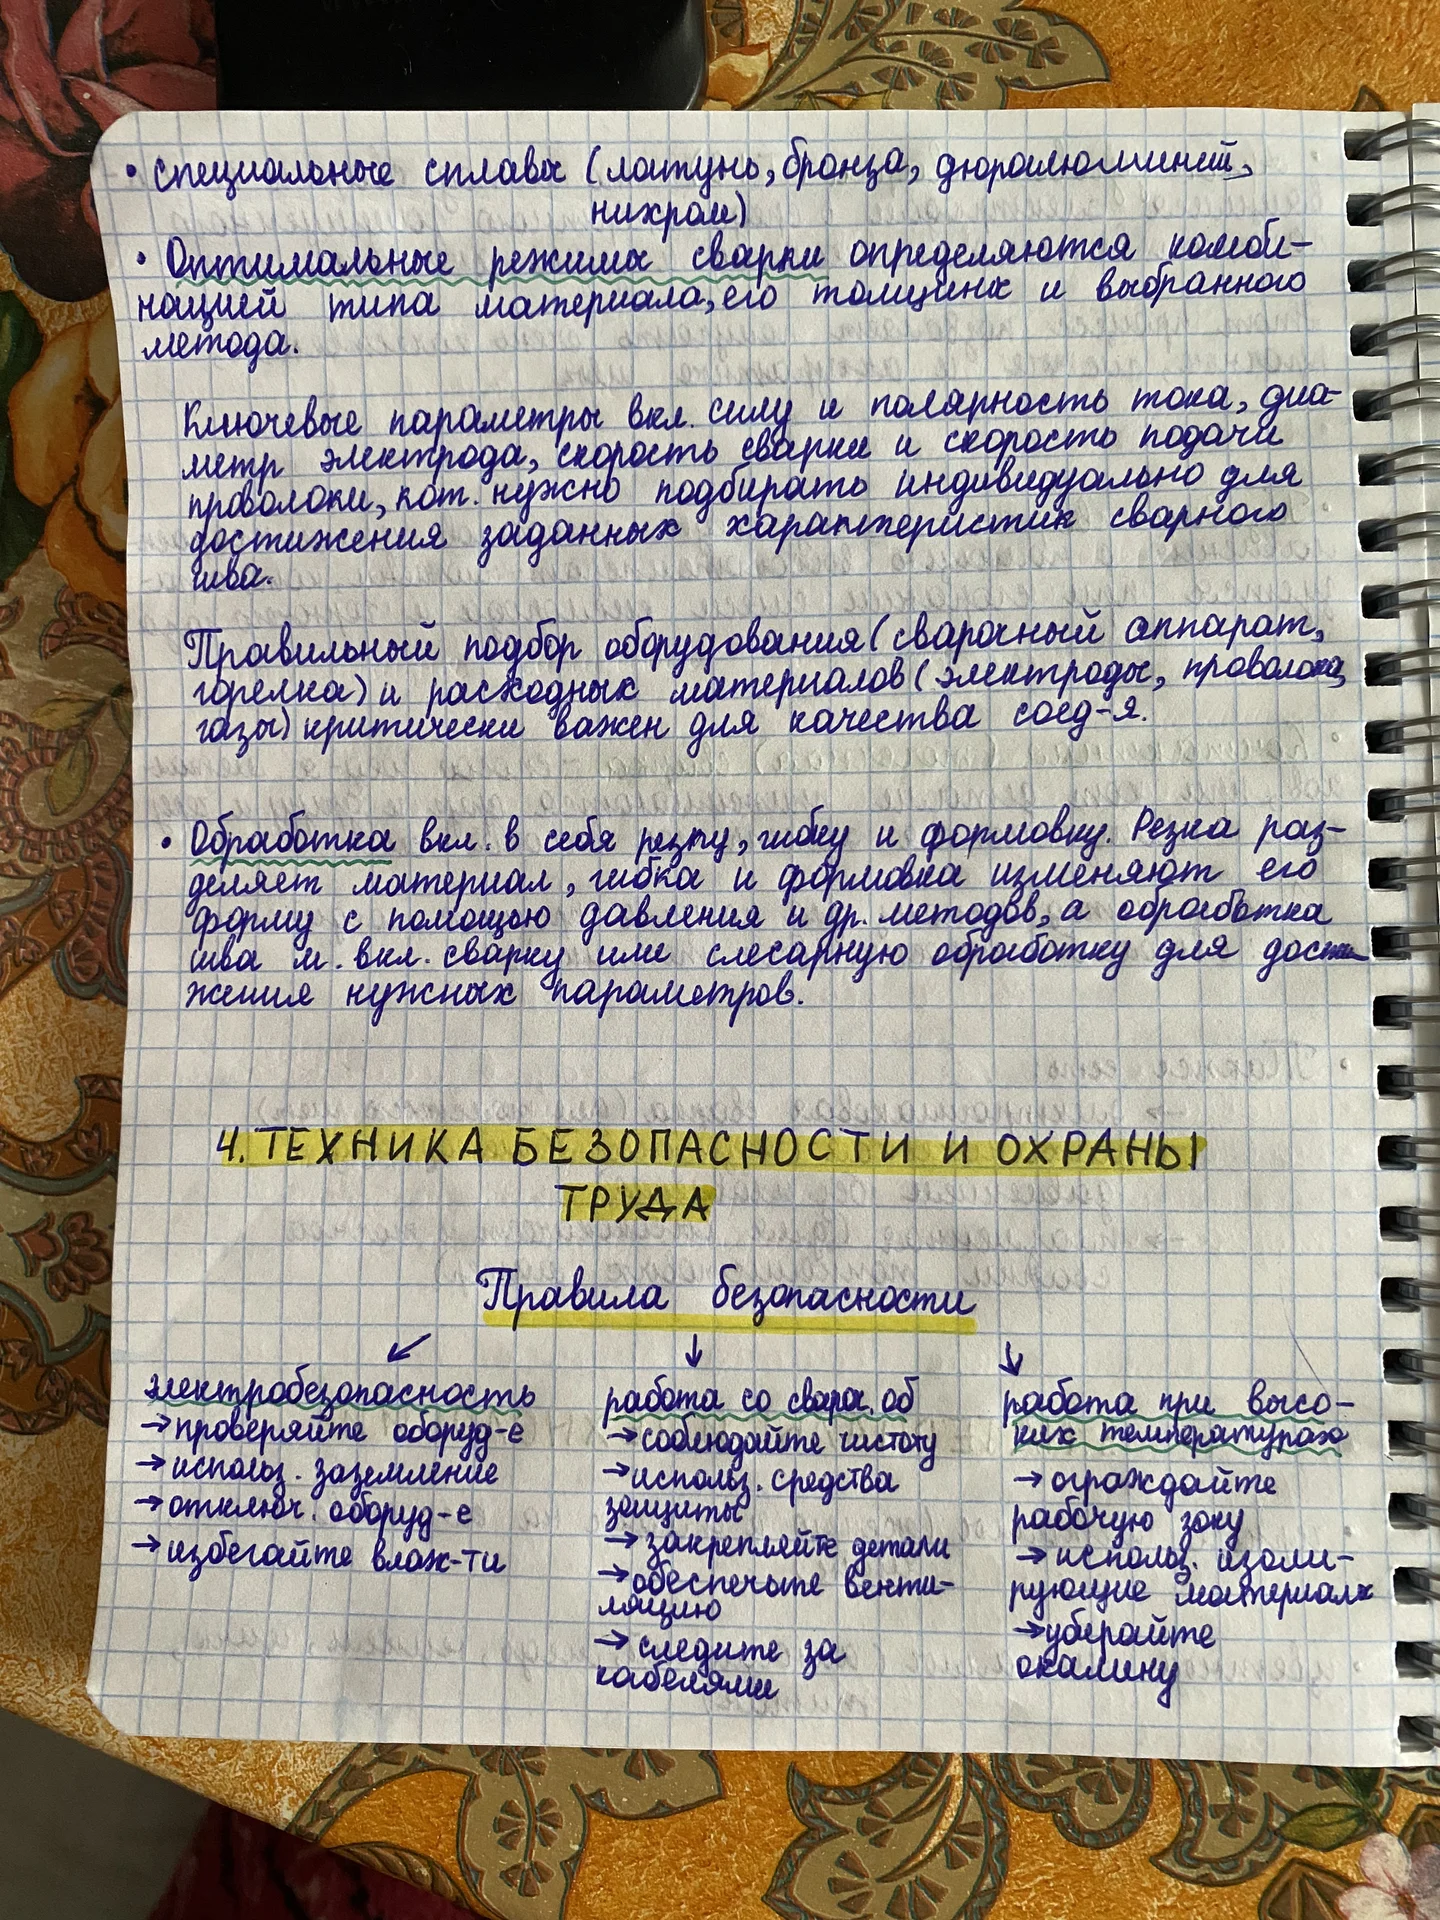 • специальные сплавы (латунь, бронза, дюралюминий,
нихром)
• Оптимальные режимы сварки определяются комби-
нацией типа материала, его толщины и выбранного
метода.
Ключевые параметры вкл. силу и полярность тока, диа-
метр электрода, скорость сварки и скорость подачи
проволоки, кот. нужно подбирать индивидуально для
достижения заданных характеристик сварного
шва.
Правильный подбор оборудования (сварочный аппарат,
горелка) и расходных материалов (электроды, проволока,
газы) критически важен для качества соед-я.
• Обработка вкл. в себя резку, гибку и формовку. Резка раз-
деляет материал, гибка и формовка изменяют его
форму с помощью давления и др. методов, а обработка
шва м. вкл. сварку или слесарную обработку для дости
жения нужных параметров.
4. ТЕХНИКА БЕЗОПАСНОСТИ И ОХРАНЫ
ТРУДА
Правила безопасности
↙ ↓ ↓
электробезопасность
→ проверяйте оборуд-е
→ использ. заземление
→ отключ. оборуд-е
→ избегайте влаж-ти
работа со свароч. об
→ соблюдайте чистоту
→ использ. средства
защиты
→ закрепляйте детали
→ обеспечьте венти-
ляцию
→ следите за
кабелями
работа при высо-
ких температурах
→ ограждайте
рабочую зону
→ использ. изоли-
рующие материалы
→ убирайте
окалину